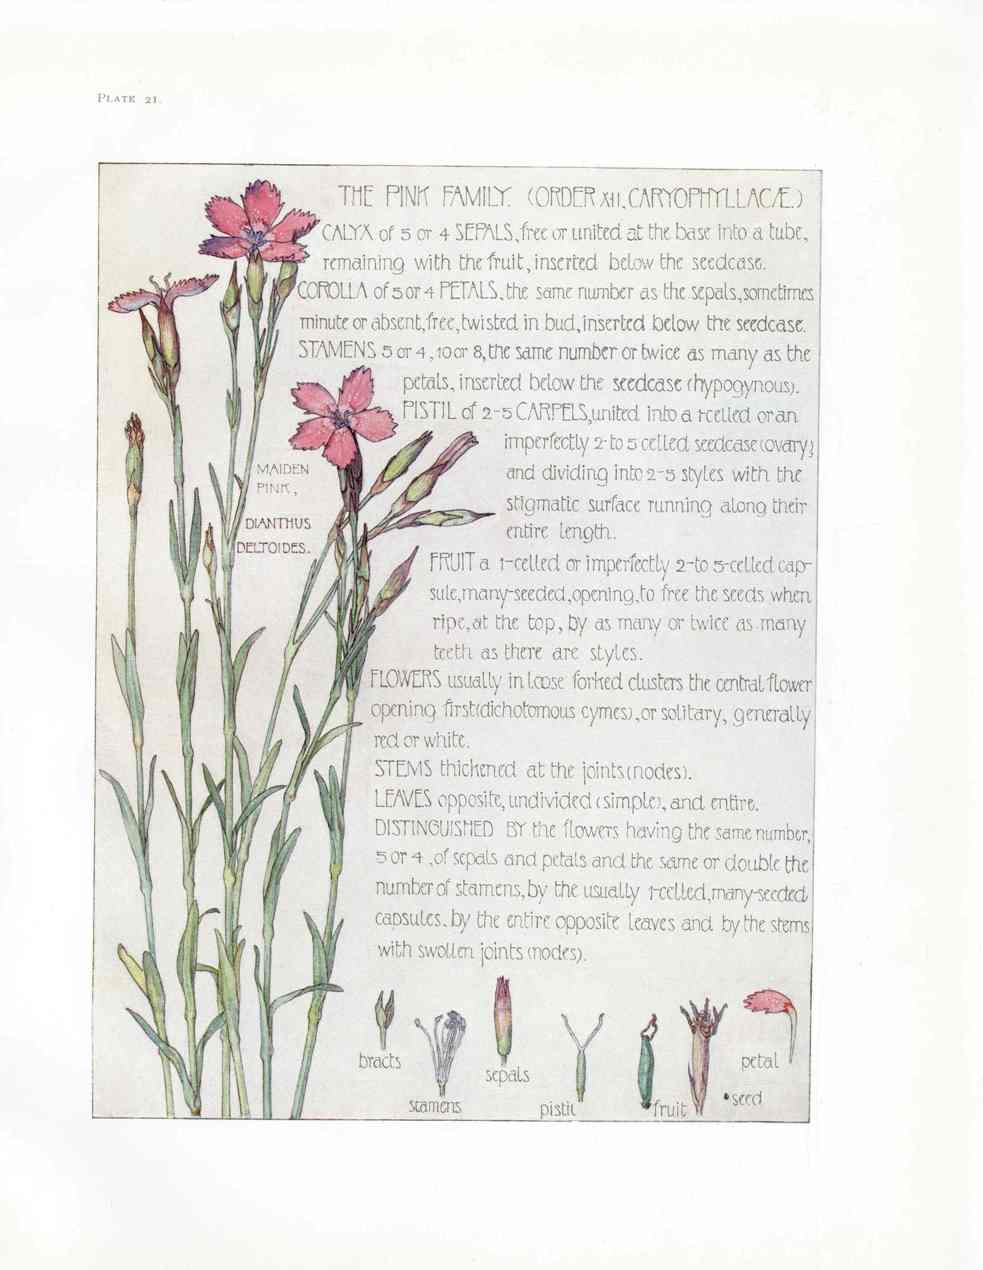 PLATE 21.
THE PINK FAMILY. (ORDER XII. CARYOPHYLLACÆ.)
CALYX of 5 or 4 SEPALS, free or united at the base into a tube,
remaining with the fruit, inserted below the seedcase.
COROLLA of 5 or 4 PETALS, the same number as the sepals, sometimes
minute or absent, free, twisted in bud, inserted below the seedcase.
STAMENS 5 or 4, 10 or 8, the same number or twice as many as the
petals, inserted below the seedcase (hypogynous).
PISTIL of 2-5 CARPELS, united into a 1-celled or an
imperfectly 2-to 5 celled seedcase (ovary)
and dividing into 2-5 styles with the
stigmatic surface running along their
entire length.
MAIDEN
PINK,
DIANTHUS
DELTOIDES.
FRUIT a 1-celled or imperfectly 2-to 5-celled cap-
sule, many-seeded, opening, to free the seeds when
ripe, at the top, by as many or twice as many
teeth as there are styles.
FLOWERS usually in loose forked clusters the central flower
opening first (dichotomous cymes), or solitary, generally
red or white.
STEMS thickened at the joints (nodes).
LEAVES opposite, undivided (simple), and entire.
DISTINGUISHED BY the flowers having the same number,
5 or 4, of sepals and petals and the same or double the
number of stamens, by the usually 1-celled, many-seeded
capsules, by the entire opposite leaves and by the stems
with swollen joints (nodes).
bracts
stamens
sepals
pistil
fruit
petal
seed